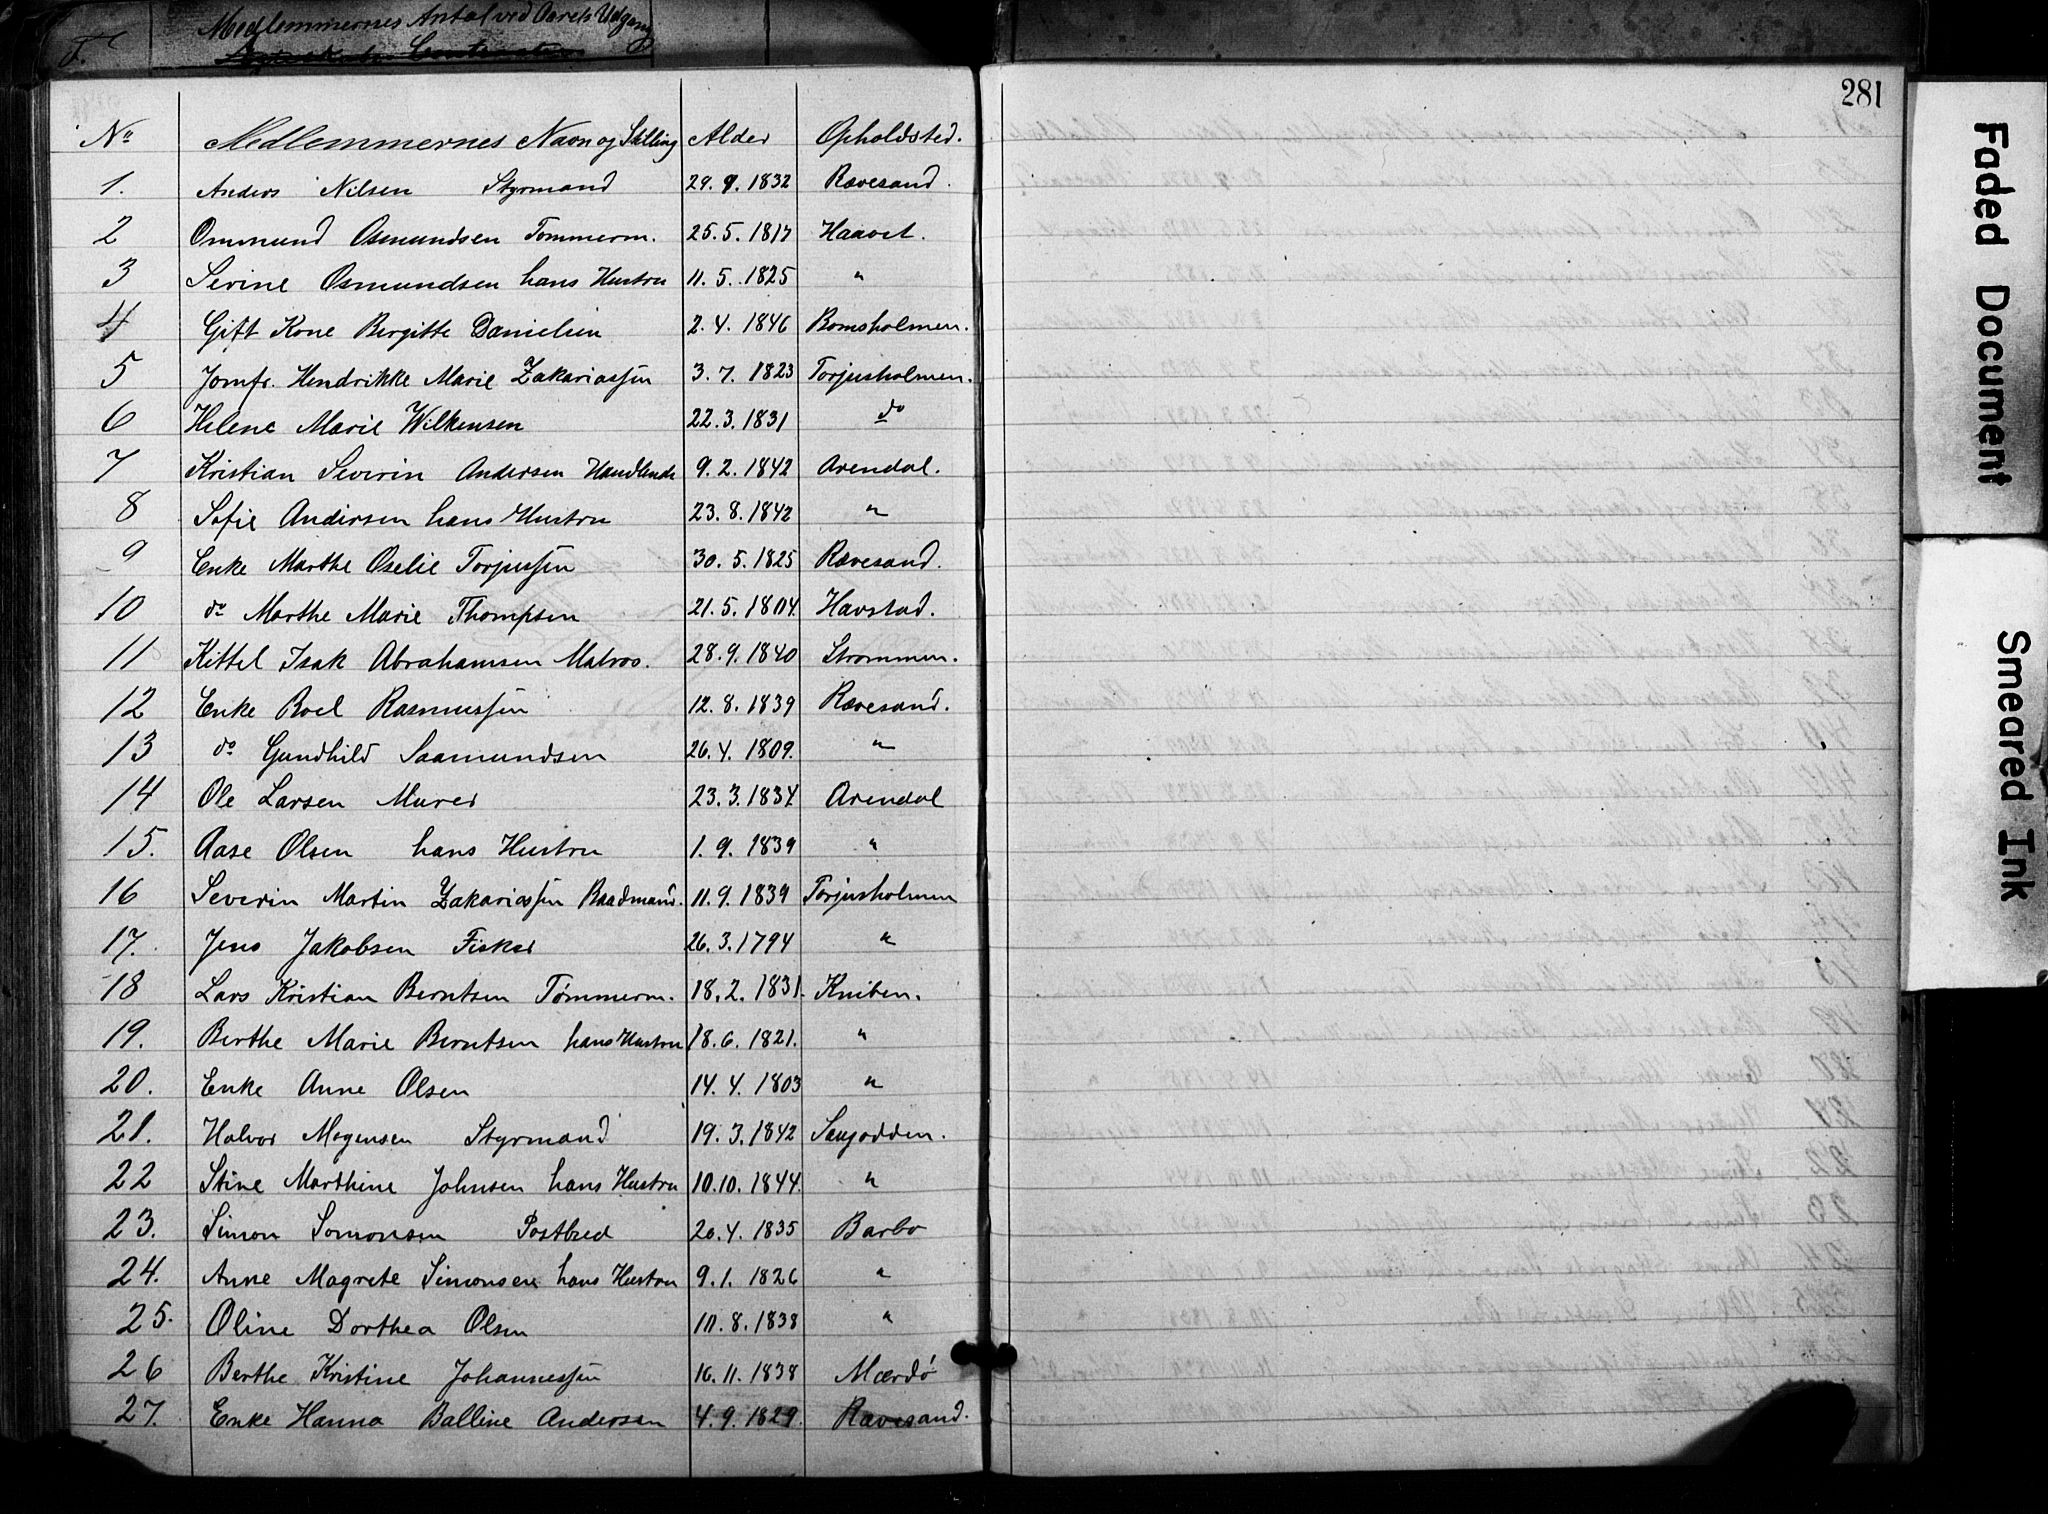 F. Medlemmernes Antal ved Aarets Udgang
281
No Medlemmernes Navn og Stilling Alder Opholdsted.
1. Anders Nilsen Styrmand 29. 9. 1832 Rævesand.
2 Ommund Osmundsen Tømmerm. 25. 5. 1817 Haavet.
3 Serine Osmundsen hans Hustru 11. 5. 1825 "
4 Gift Kone Bergitte Danielsen 2. 4. 1846 Bomsholmen.
5 Jomfr. Hendrikke Marie Zakariassen 3. 7. 1823 Torjusholmen.
6 Helene Marie Wilkensen 22. 3. 1831 do
7 Kristian Severin Andersen Handlende 9. 2. 1842 Arendal.
8 Sofie Andersen hans Hustru 23. 8. 1842 "
9 Enke Marthe Oselie Torjussen 30. 5. 1825 Rævesand.
10 do Marthe Marie Thompsen 21. 5. 1804. Havstad.
11 Kittel Isak Abrahamsen Matros. 28. 9. 1840 Strømmen.
12 Enke Roel Rasmussen 12. 8. 1839 Rævesand.
13 do Gundhild Saamundsen 26. 4. 1809. "
14 Ole Larsen Murer 23. 3. 1834 Arendal
15. Aase Olsen hans Hustru 1. 9. 1839 "
16 Severin Martin Zakariassen Raadmand. 11. 9. 1839 Torjusholmen
17. Jens Jakobsen Fisker 26. 3. 1794 "
18 Lars Kristian Berntsen Tømmerm. 18. 2. 1831. Kniben.
19. Berthe Marie Berntsen hans Hustru 18. 6. 1821. "
20. Enke Anne Olsen 14. 4. 1803 "
21. Halvor Mogensen Styrmand 19. 3. 1842 Saugodden.
22 Stine Marthine Johnsen hans Hustru 10. 10. 1844. "
23. Simon Somonsen Postbud 20. 4. 1835 Barbo
24. Anne Magrete Simonsen hans Hustru 9. 1. 1826 "
25. Oline Dorthea Olsen 10. 8. 1838 "
26 Berthe Kristine Johannessen 16. 11. 1838 Mærdø
27. Enke Hanna Balline Andersen 4. 9. 1829. Rævesand.
Faded Document
Smeared Ink